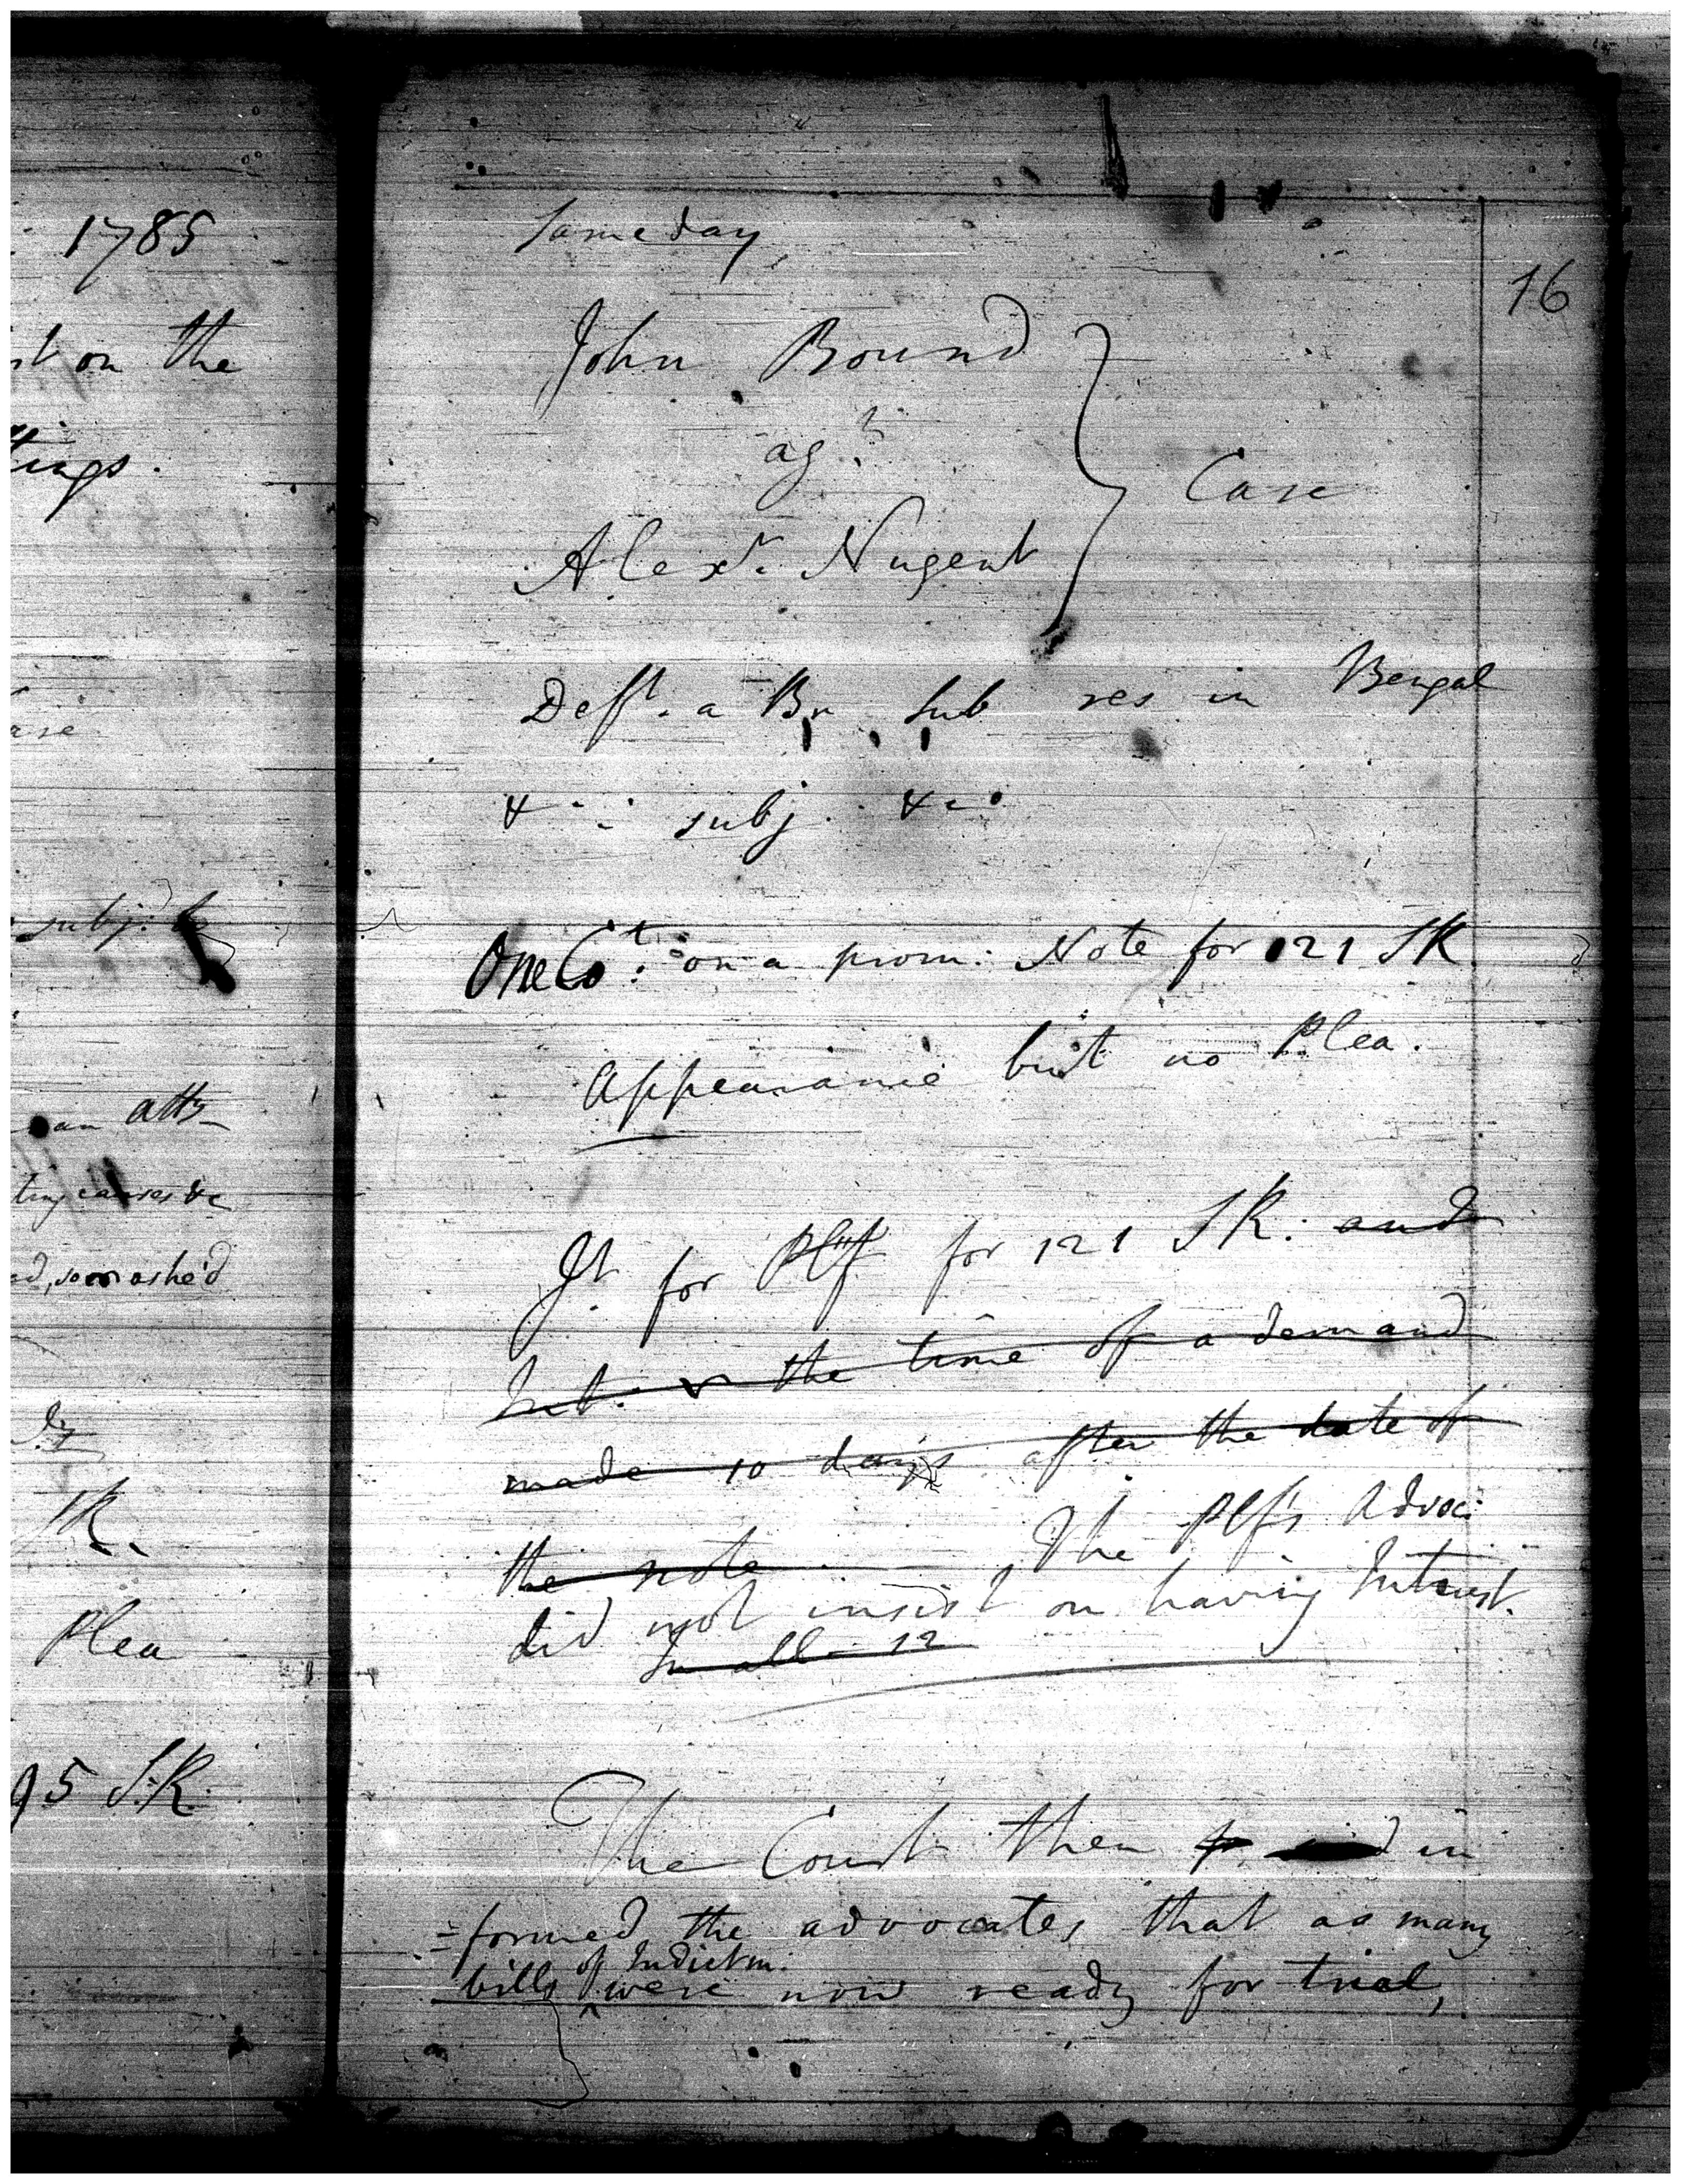 1785
on the
tings.
subj: to
an atty
ting causes &c
ed, soon as he'd
SR.
Plea
95 S.R.
Same day,
16
John Bound
agt
Alexr. Nugent
Case
Deft. a Br Sub res in Bengal
&c: subj. &c:
One Ct: on a prom: Note for 121 SR
Appearance but no Plea.
Jt. for Plf for 121 SR: and
Int: the time of a demand
made 10 days after the date of
the note. The Plf's Advoc:
did not insist on having Interest.
In all 12
The Court then in
=formed the advocates that as many
of Indictm:
bills were now ready for trial,